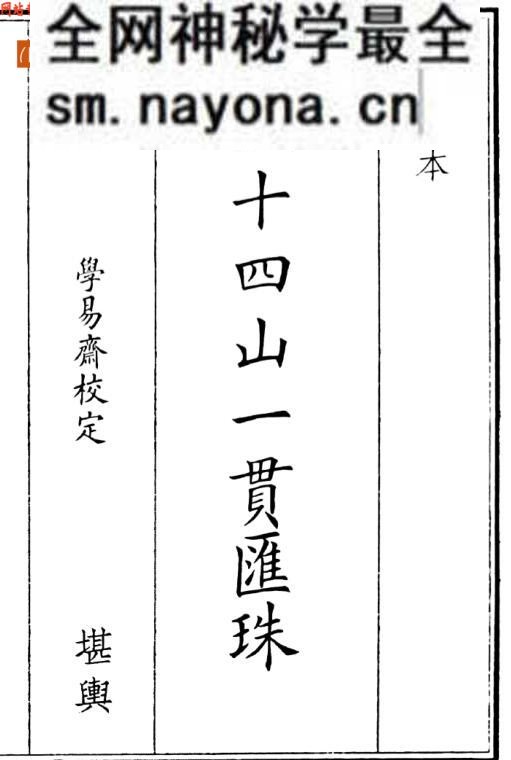 全网神秘学最全
sm.nayona.cn
本
十四山一貫匯珠
學易齋校定
堪輿